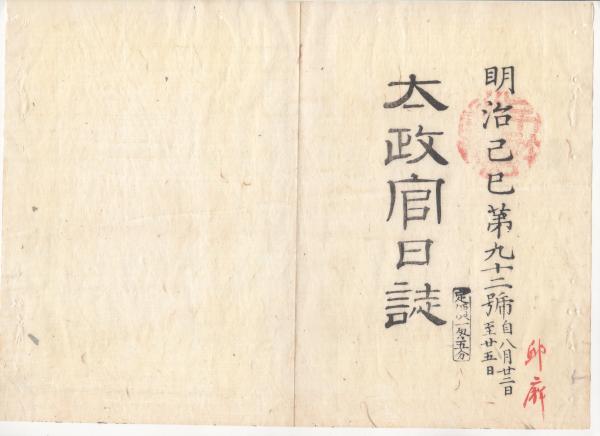 明治己巳第九十二號 自八月廿二日
至廿五日
太政官日誌